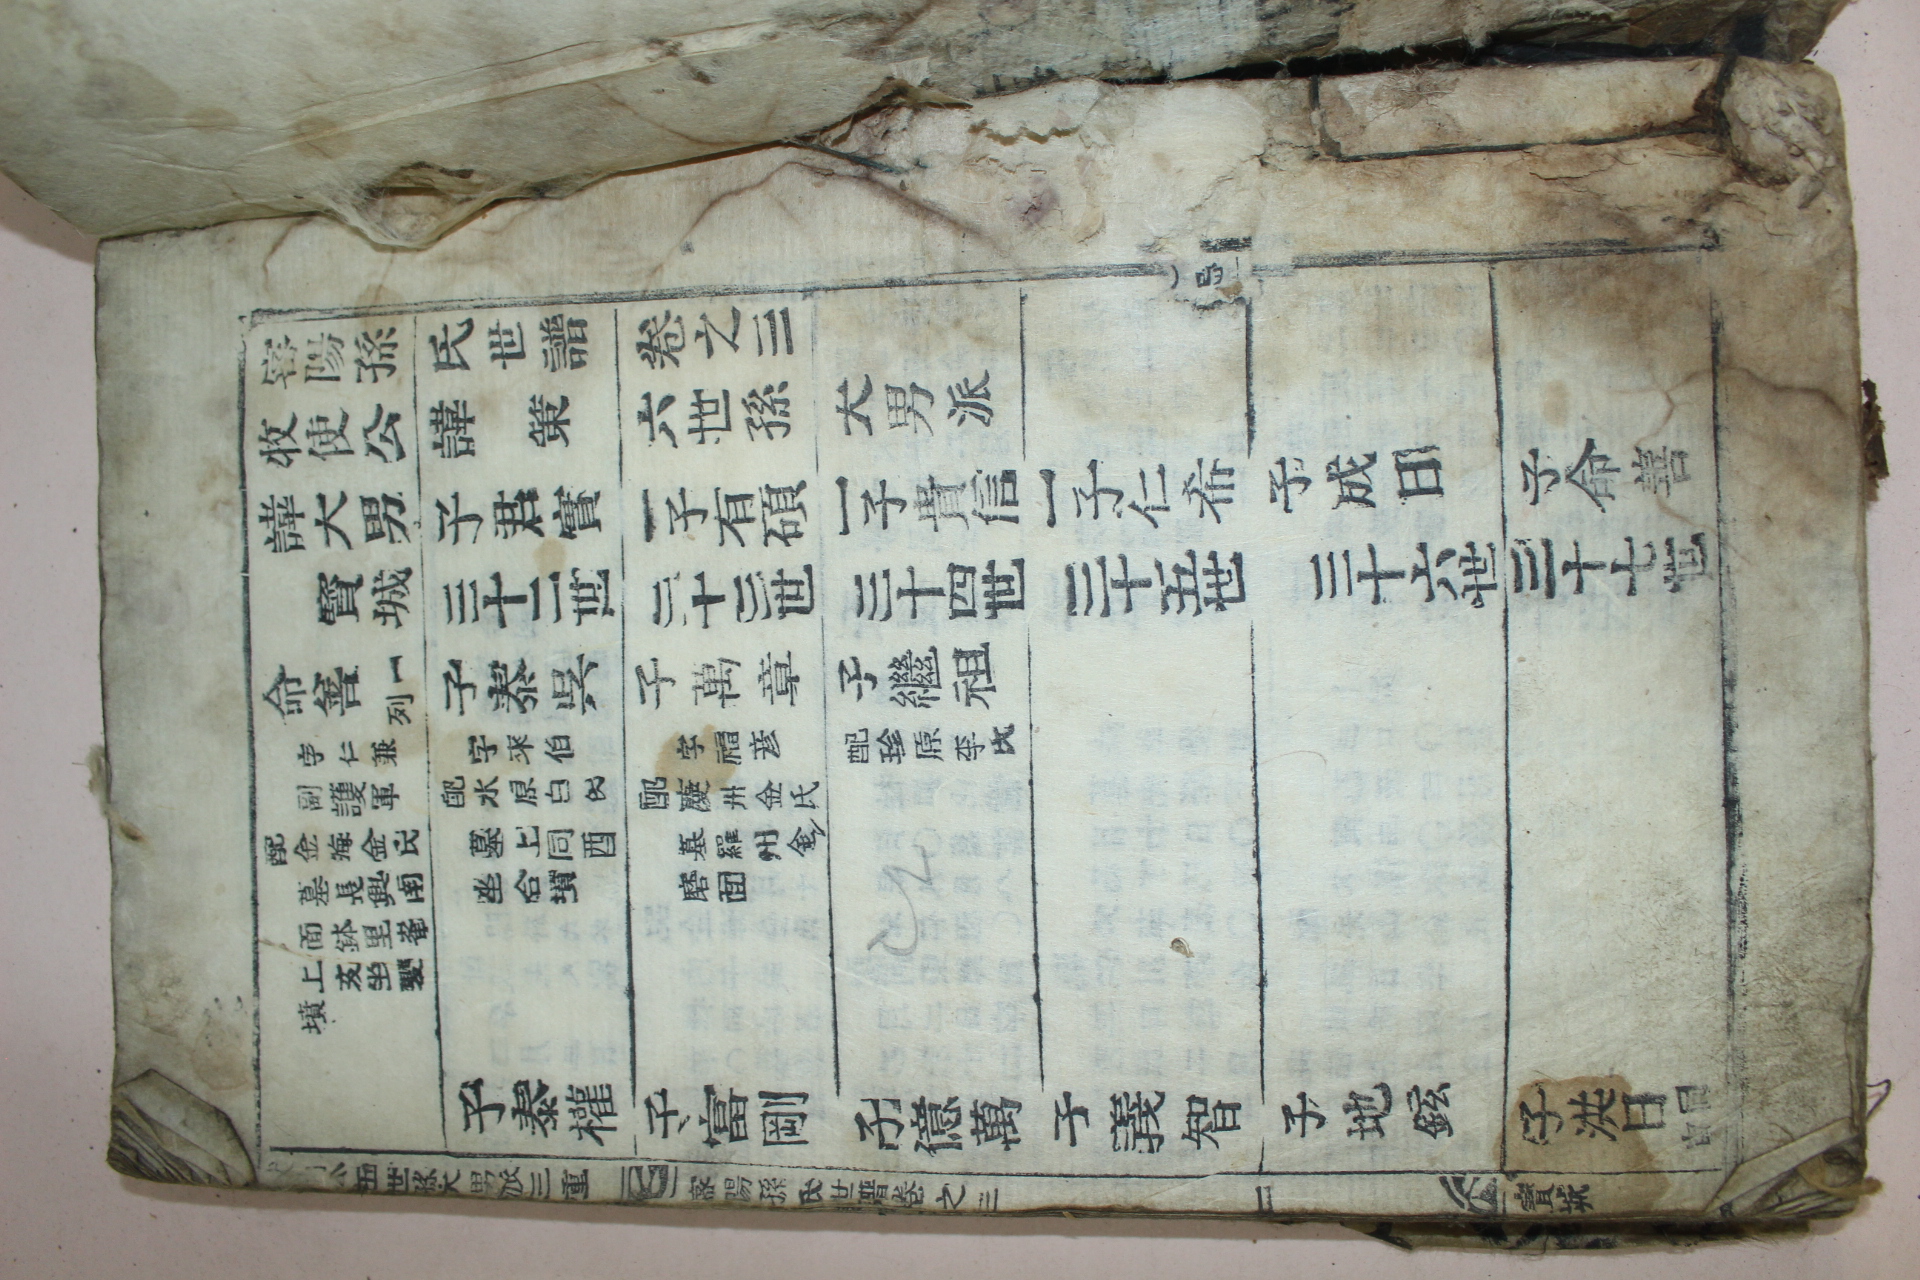 密陽孫氏世譜卷之三
牧使公諱策六世孫大男派
諱大男 子君實 一子有碩 一子貴信 一子仁希 子成日 子命善
寶城 三十二世 三十三世 三十四世 三十五世 三十六世 三十七世
命善一列 子泰吳 子萬章 子繼祖
字仁兼 字來伯 字福彦 配珍原李氏
副護軍 配水原白氏 配慶州金氏
配金海金氏 墓上同酉 墓羅州金
墓長興南 坐合墳 磨面
面鉢里菴
上亥坐雙
墳
子泰權 子富剛 子億萬 子義智 子地鉉 子洪日
公五世孫大男派三重 密陽孫氏世譜卷之三 一 寶城